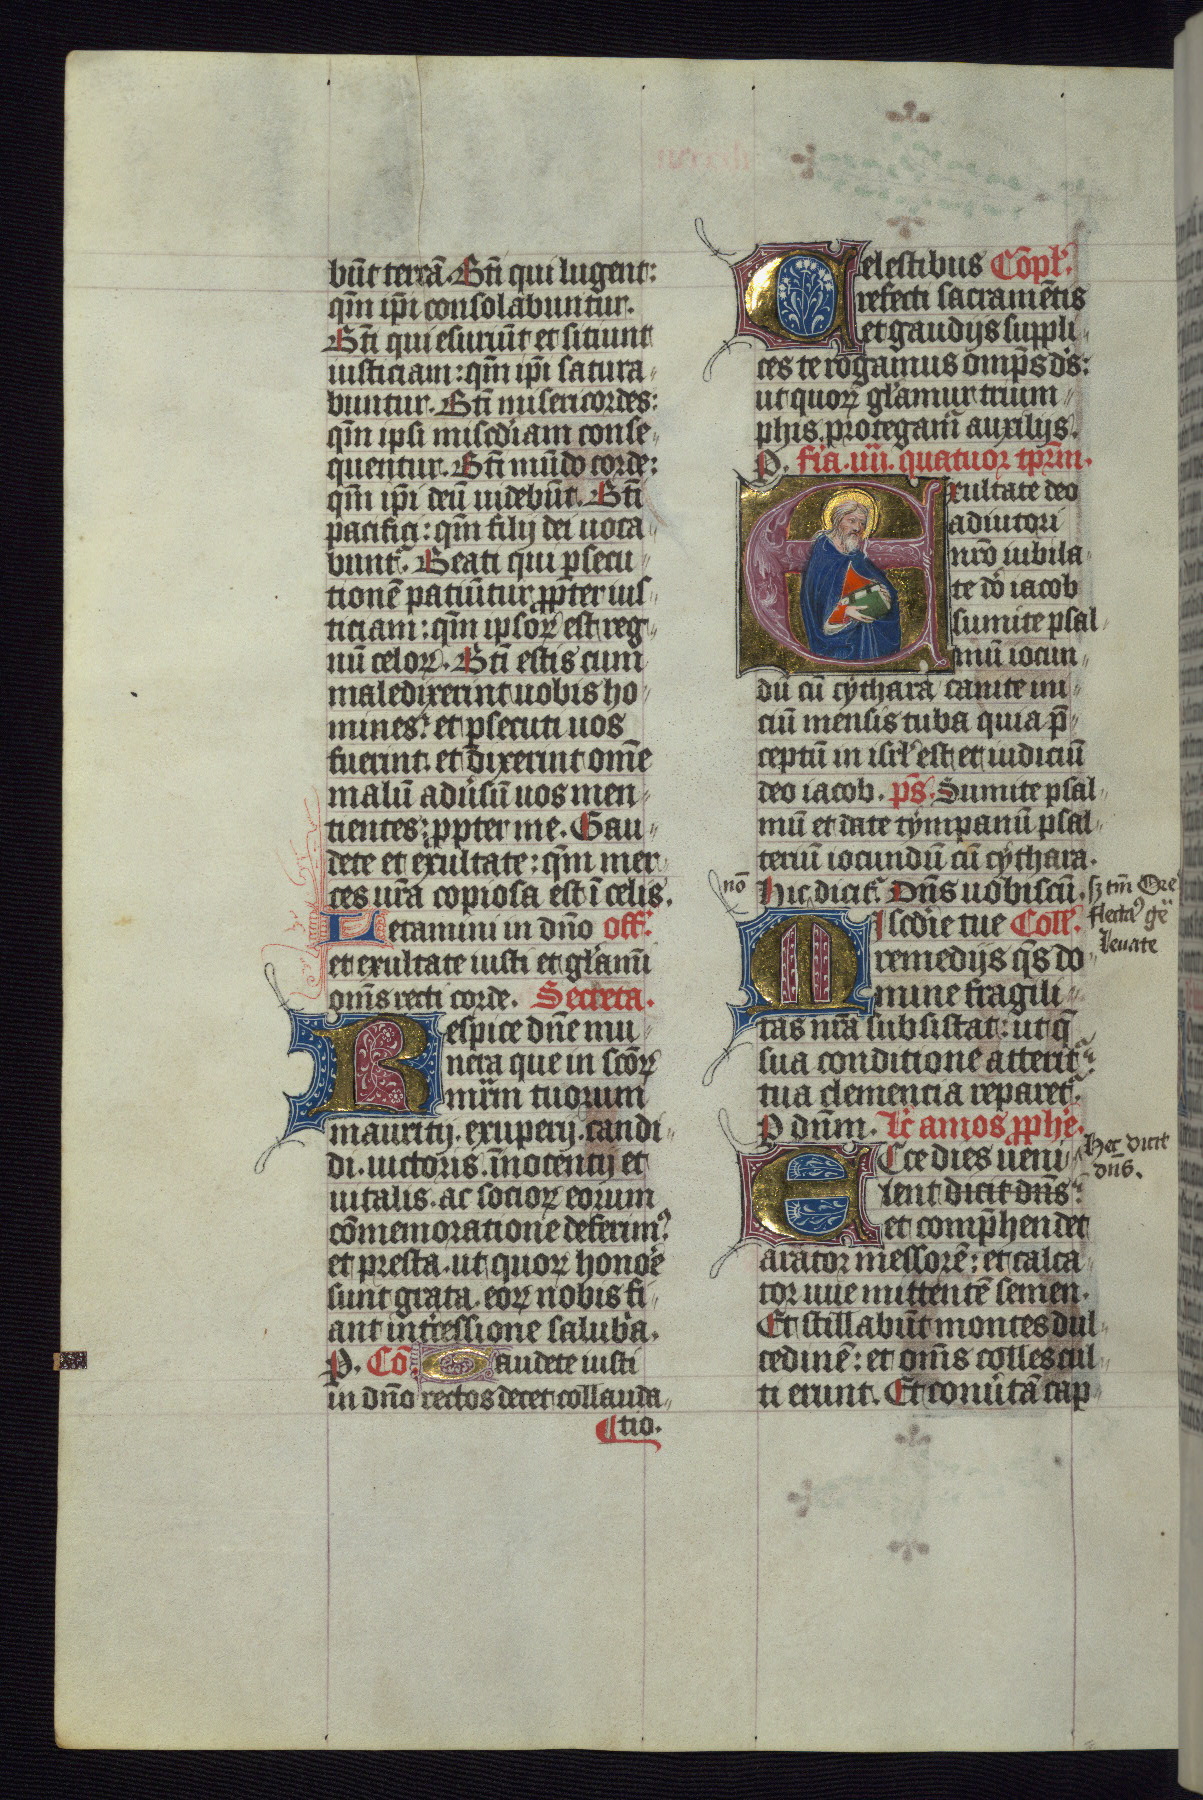 būt terrā. Bti qui lugent:
qm̄ ipi consolabuntur.
Bti qui esuriūt et sitiunt
iusticiam: qm̄ ipi satura
buntur. Bti misericordes:
qm̄ ipsi miscd̄iam conse
quentur. Bti mūdo corde:
qm̄ ipi deū uidebūt. Bti
pacifici: qm̄ filij dei uoca
bunt. Beati qui psecu
tionē patiūtur ppter ius
ticiam: qm̄ ipsoꝝ est reg
nū celoꝝ. Bti estis cum
maledixerint uobis ho
mines: et psecuti uos
fuerint. et dixerint omē
malū adusū uos men
tientes: ppter me. Gau
dete et exultate: qm̄ mer
ces ur̄a copiosa est ī celis.
Letamini in dn̄o off.
et exultate iusti et glam̄i
om̄s recti corde. Secreta.
Respice dn̄e mu
nera que in scōꝝ
mr̄m tuorum
mauritij. exuperij. candi
di. uictoris. īnocentij et
uitalis. ac socioꝝ eorum
cōmemoratione deferim⁹
et presta. ut quoꝝ honoē
sunt grata. eoꝝ nobis fi
ant intcessione saluba.
P. Cō. Gaudete iusti
in dn̄o rectos decet collauda
tio.
Celestibus Cōpl.
refecti sacramētis
et gaudijs suppli
ces te rogamus omp̄s ds:
ut quoꝝ glamur trium
phis. protegam̄ auxilijs.
P. fia. iiii. quatuor tpr̄m.
Exultate deo
adiutori
nrō iubila
te dō iacob
sumite psal
mū iocun
dū cū cythara canite ini
ciū mensis tuba quia p̄
ceptū in isrl est et iudiciū
deo iacob. ps. Sumite psal
mū et date tympanū psal
teriū iocundū cū cythara.
nō Hic dicit Dn̄s uobiscū. sꝫ tm̄ Ore
flecta⁹ ge
leuate
Miscdie tue Coll.
remedijs qs̄ do
mine fragili
tas nr̄a subsistat: ut q̄
sua conditione atterit
tua clementia reparet.
P dn̄m. Lc amos pphe.
Ecce dies ueni Hec dicit
dn̄s.
ient dicit dn̄s
et comphendet
arator messorē: et calca
tor uue mittentē semen.
Et stillabūt montes dul
cedinē: et om̄s colles cul
ti erunt. Et conutā cap